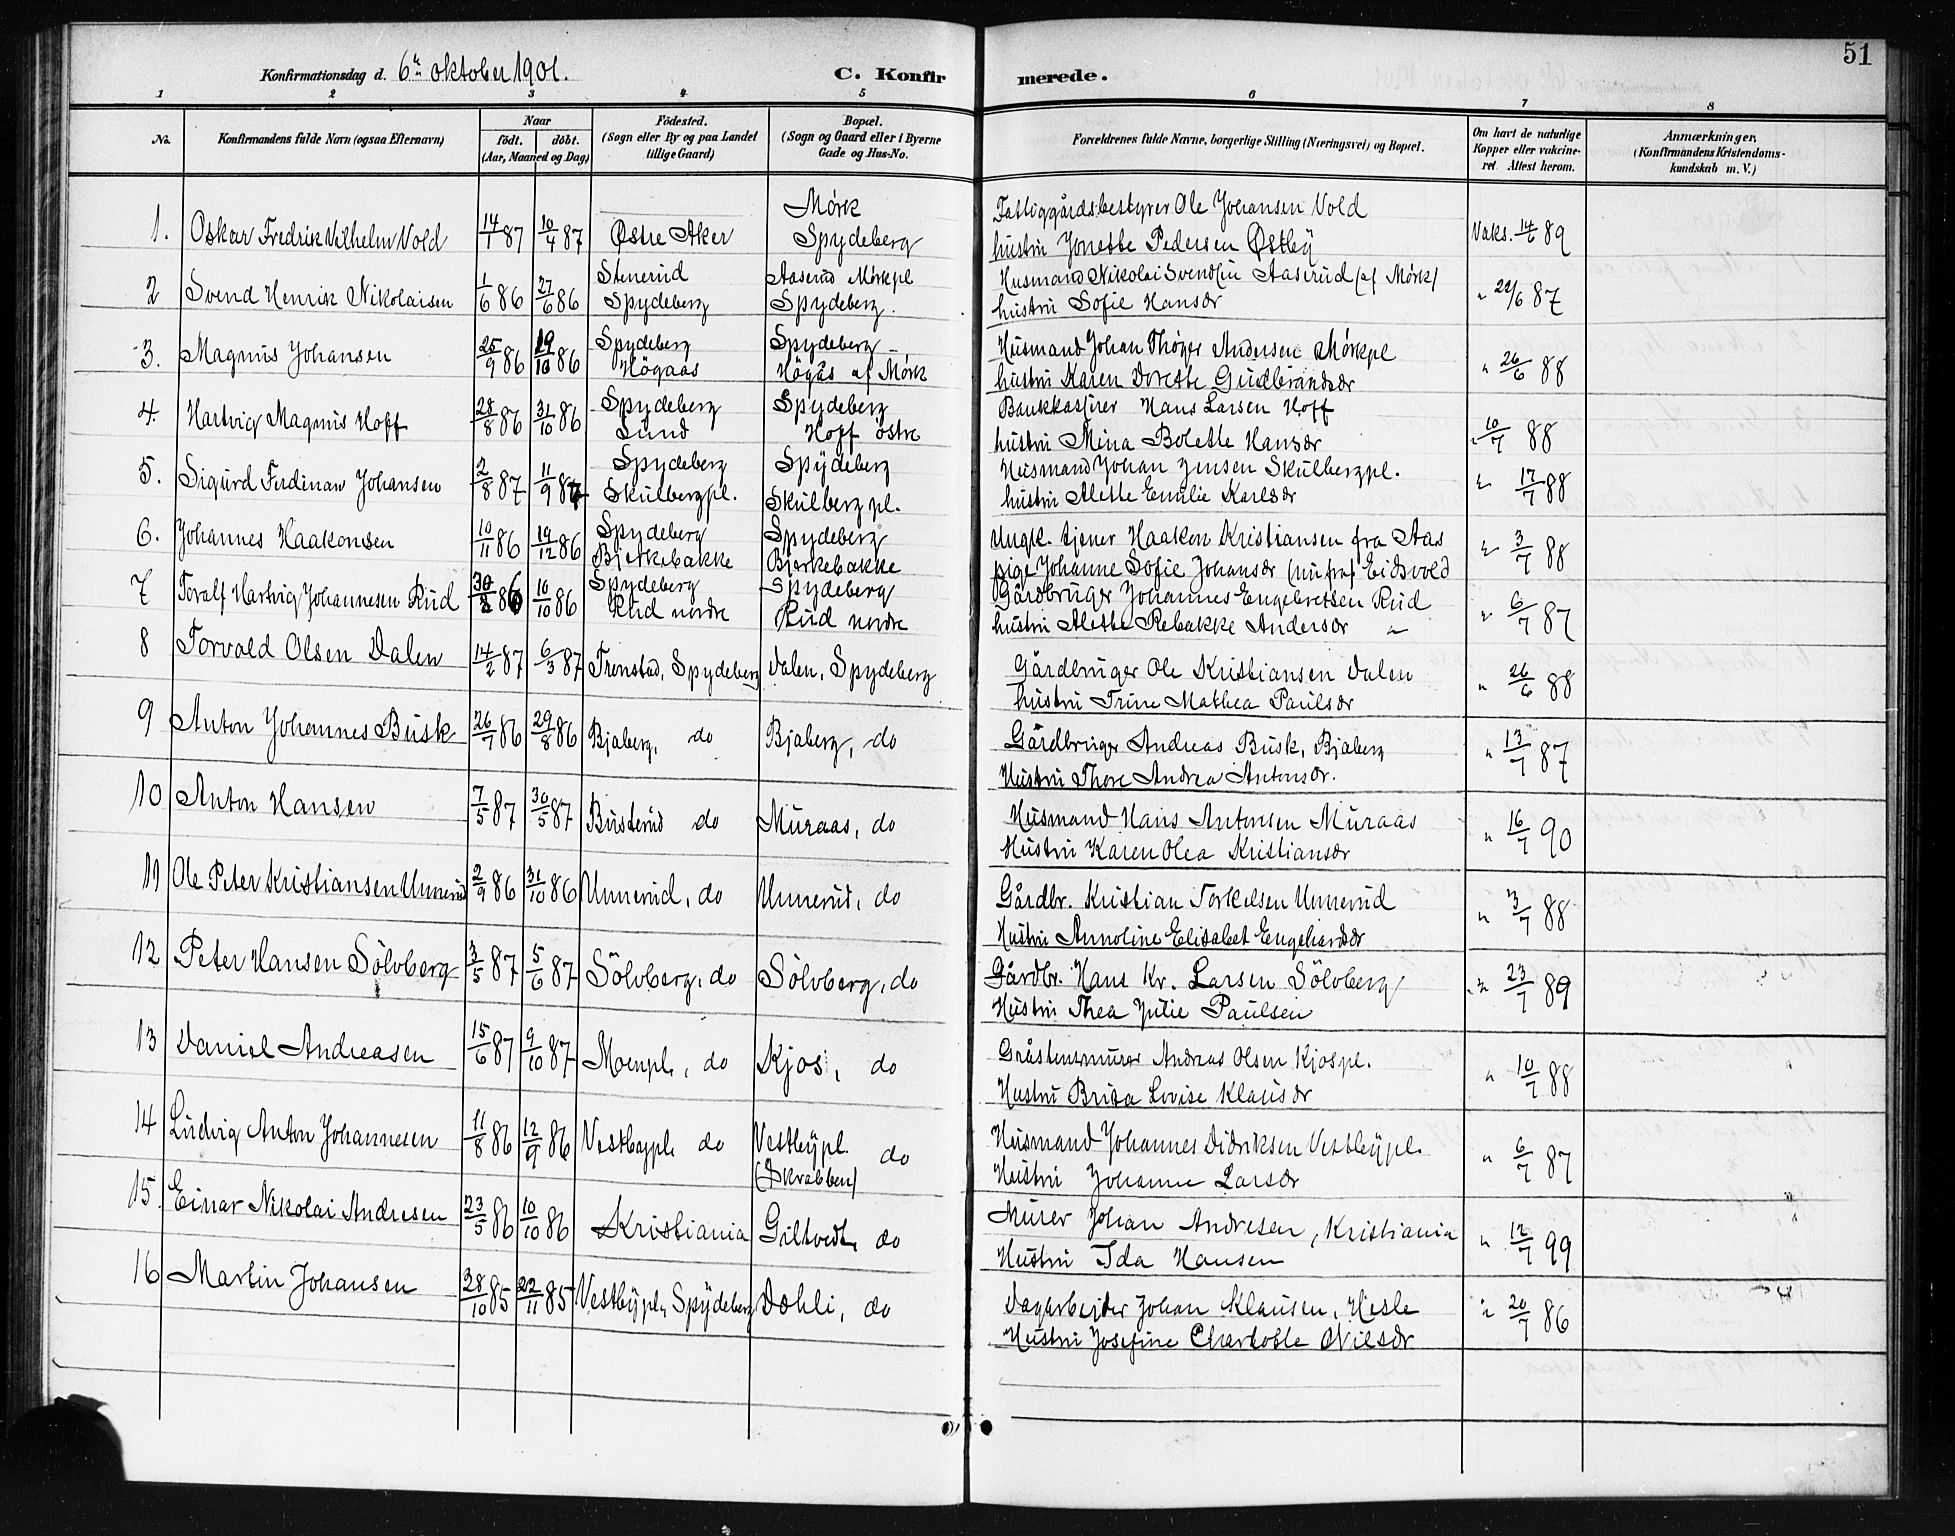 51
Konfirmationsdag d. 6te oktober 1901.
C. Konfirmerede.
1 2 3 4 5 6 7 8
No.
Konfirmandens fulde Navn (ogsaa Efternavn)
Naar
født. døbt.
(Aar, Maaned og Dag)
Fødested.
(Sogn eller By og paa Landet
tillige Gaard)
Bopæl.
(Sogn og Gaard eller i Byerne
Gade og Hus-No.
Forældrenes fulde Navne, borgerlige Stilling (Næringsvei) og Bopæl.
Om havt de naturlige
Kopper eller vakcine-
ret Attest herom.
Anmærkninger,
(Konfirmandens Kristendoms-
kundskab m. V.)
1. Oskar Fredrik Vilhelm Vold 14/1 87 10/4 87 Østre Aker Mørk
Spydeberg
Fattiggårdsbestyrer Ole Johansen Vold
hustru Jonette Pedersen Østby
Vaks. 14/6 89
2 Svend Henrik Nikolaisen 1/6 86 27/6 86 Stenerud
Spydeberg
Aaserud Mørkpl
Spydeberg.
Husmand Nikolai Svendsen Aaserud (af Mørk)
hustru Sofie Hansdr
" 22/6 87
3. Magnus Johansen 25/9 86 19/10 86 Spydeberg
Högaas
Spydeberg
Högås af Mørk
Husmand Johan Thøger Andersen Mørkpl
hustru Karen Dorette Gudbrandsdr
" 26/6 88
4. Hartvig Magnus Hoff 28/8 86 31/10 86 Spydeberg
Lund
Spydeberg
Hoff östre
Bankkasserer Hans Larsen Hoff
hustru Mina Bolette Hansdr
" 10/7 88
5. Sigurd Ferdinan Johansen 2/8 87 11/9 87 Spydeberg
Skulbergpl.
Spydeberg
Skulbergpl.
Husmand Johan Jensen Skulbergpl.
hustru Alette Emilie Karlsdr
" 17/7 88
6. Johannes Haakonsen 10/11 86 19/12 86 Spydeberg
Bjerkebakke
Spydeberg
Bjerkebakke
Ungk. tjener Haakon Kristiansen fra Aas
pige Johanne Sofie Johansdr (nu fra) Eidsvold
" 3/7 88
7 Toralf Hartvig Johannesen Rud 30/8 86 10/10 86 Spydeberg
Rud nordre
Spydeberg
Rud nordre
Gårdbruger Johannes Engebretsen Rud
hustru Alette Rebakke Andersdr "
" 6/7 87
8 Torvald Olsen Dalen 14/2 87 6/3 87 Tronstad, Spydeberg Dalen, Spydeberg
Gårdbruger Ole Kristiansen Dalen
hustru Trine Mathea Paulsdr
" 26/6 88
9 Anton Johannes Busk 26/7 86 29/8 86 Bjaberg, do Bjaberg, do
Gårdbruger Andreas Busk, Bjaberg
Hustru Thore Andrea Antonsdr.
" 13/7 87
10 Anton Hansen 7/5 87 30/5 87 Busterud do Muraas, do
Husmand Hans Antonsen Muraas
Hustru Karen Olea Kristiansdr
" 16/7 90
11 Ole Peter Kristiansen Unnerud 2/9 86 31/10 86 Unnerud, do Unnerud, do
Gårdbr. Kristian Torkelsen Unnerud
Hustru Annoline Elisabet Engehardsdr
" 3/7 88
12 Peter Hansen Sölvberg 3/5 87 5/6 87 Sölvberg, do Sölvberg, do
Gårdbr. Hans Kr. Larsen Sölvberg
Hustru Thea Julie Paulsen
" 23/7 89
13 Daniel Andreasen 15/6 87 9/10 87 Moenpl., do Kjos, do
Gråstensmurer Andreas Olsen Kjospl.
Hustru Brita Lovise Klausdr
" 10/7 88
14 Ludvig Anton Johannesen 11/8 86 12/9 86 Vestbypl. do Vestbypl. do
(Skrabben)
Husmand Johannes Didriksen Vestbypl.
Hustru Johanne Larsdr
" 6/7 87
15. Einar Nikolai Andresen 23/5 86 10/10 86 Kristiania Giltvedt, do
Murer Johan Andresen, Kristiania
Hustru Ida Hansen
" 12/7 99
16 Martin Johansen 28/10 85 22/11 85 Vestbypl, Spydeberg Dæhli, do
Dagarbejder Johan Klausen, Hesle
Hustru Josefine Charlotte Nilsdr
" 20/7 86